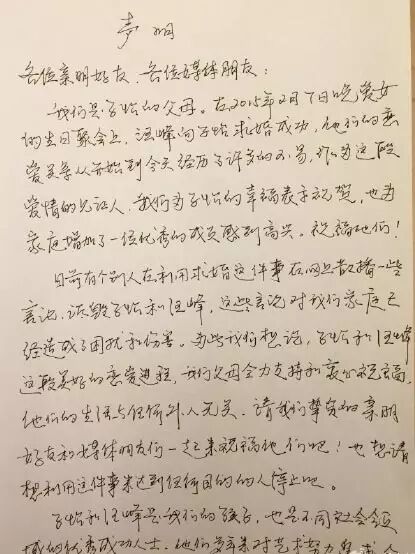 声明
各位亲朋好友、各位媒体朋友：
我们是子怡的父母。在2015年2月7日晚爱女
的生日聚会上，汪峰向子怡求婚成功，他们的恋
爱关系从开始到今天经历了许多的不易，作为这段
爱情的见证人，我们为子怡的幸福表示祝贺，也为
家庭增加了一位优秀的成员感到高兴。祝福他们！
目前有个别人在利用求婚这件事在网上散播一些
言论，诋毁子怡和汪峰，这些言论对我们家庭已
经造成了困扰和伤害。为此我们想说，子怡和汪峰
这段美好的恋爱进程，我们父母全力支持和衷心祝福，
他们的生活与任何外人无关。请我们挚爱的亲朋
好友和媒体朋友们一起来祝福他们吧！也想请
想利用这件事来达到任何目的的人停止吧。
子怡和汪峰是我们的孩子，也是不同社会领
域的优秀成功人士，他们